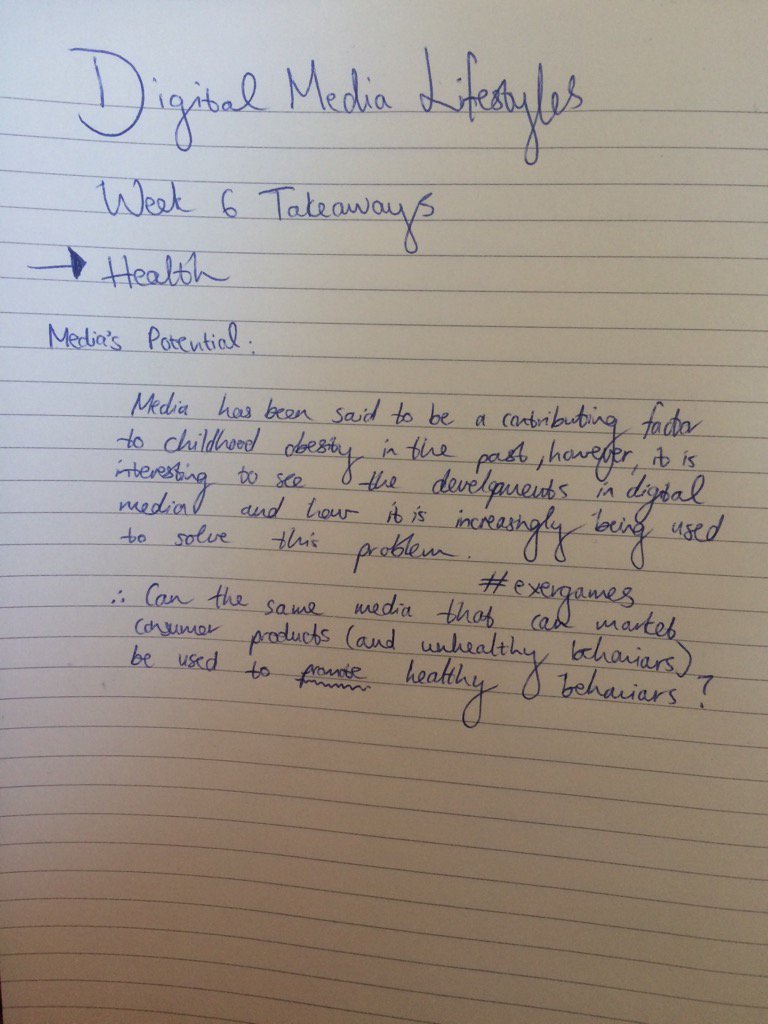 Digital Media Lifestyles
Week 6 Takeaways
→ Health
Media's Potential:
Media has been said to be a contributing factor
to childhood obesity in the past, however, it is
interesting to see the developments in digital
media and how it is increasingly being used
to solve this problem.
#exergames
∴ Can the same media that can market
consumer products (and unhealthy behaviars)
be used to promote healthy behaviars?